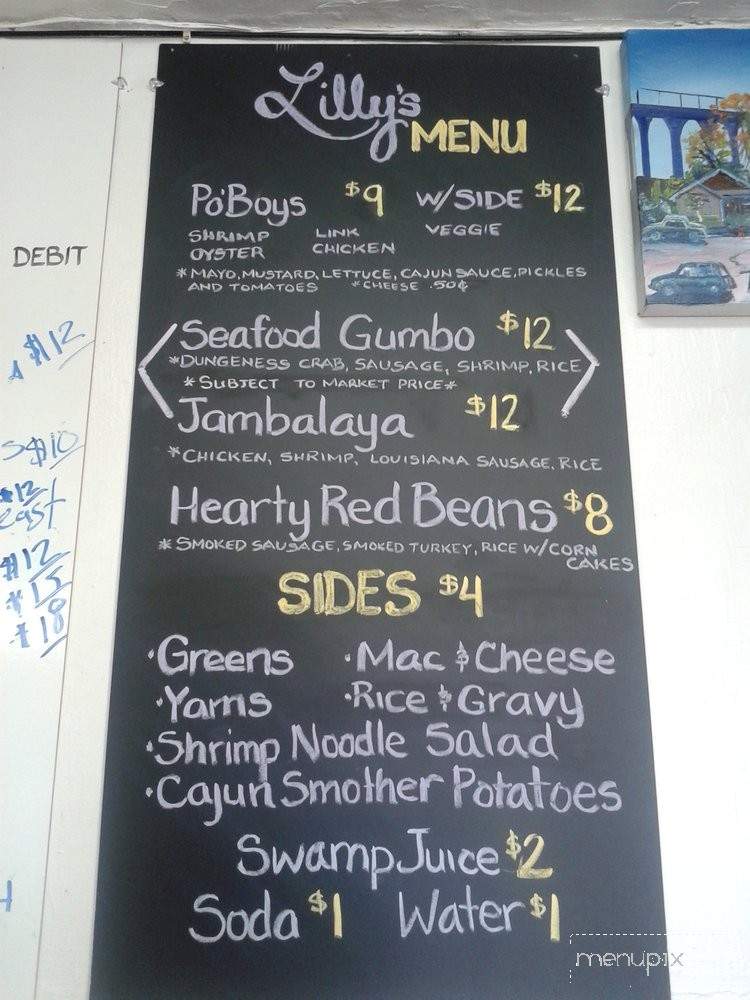 Lilly's MENU
Po'Boys $9 W/SIDE $12
SHRIMP LINK VEGGIE
OYSTER CHICKEN
*MAYO, MUSTARD, LETTUCE, CAJUN SAUCE, PICKLES
AND TOMATOES *CHEESE .50¢
Seafood Gumbo $12
*DUNGENESS CRAB, SAUSAGE, SHRIMP, RICE
*SUBJECT TO MARKET PRICE*
Jambalaya $12
*CHICKEN, SHRIMP, LOUISIANA SAUSAGE, RICE
Hearty Red Beans $8
*SMOKED SAUSAGE, SMOKED TURKEY, RICE W/CORN
CAKES
SIDES $4
·Greens ·Mac & Cheese
·Yams ·Rice & Gravy
·Shrimp Noodle Salad
·Cajun Smother Potatoes
Swamp Juice $2
Soda $1 Water $1
DEBIT
$12
$10
$12
$12
15
18
menupix